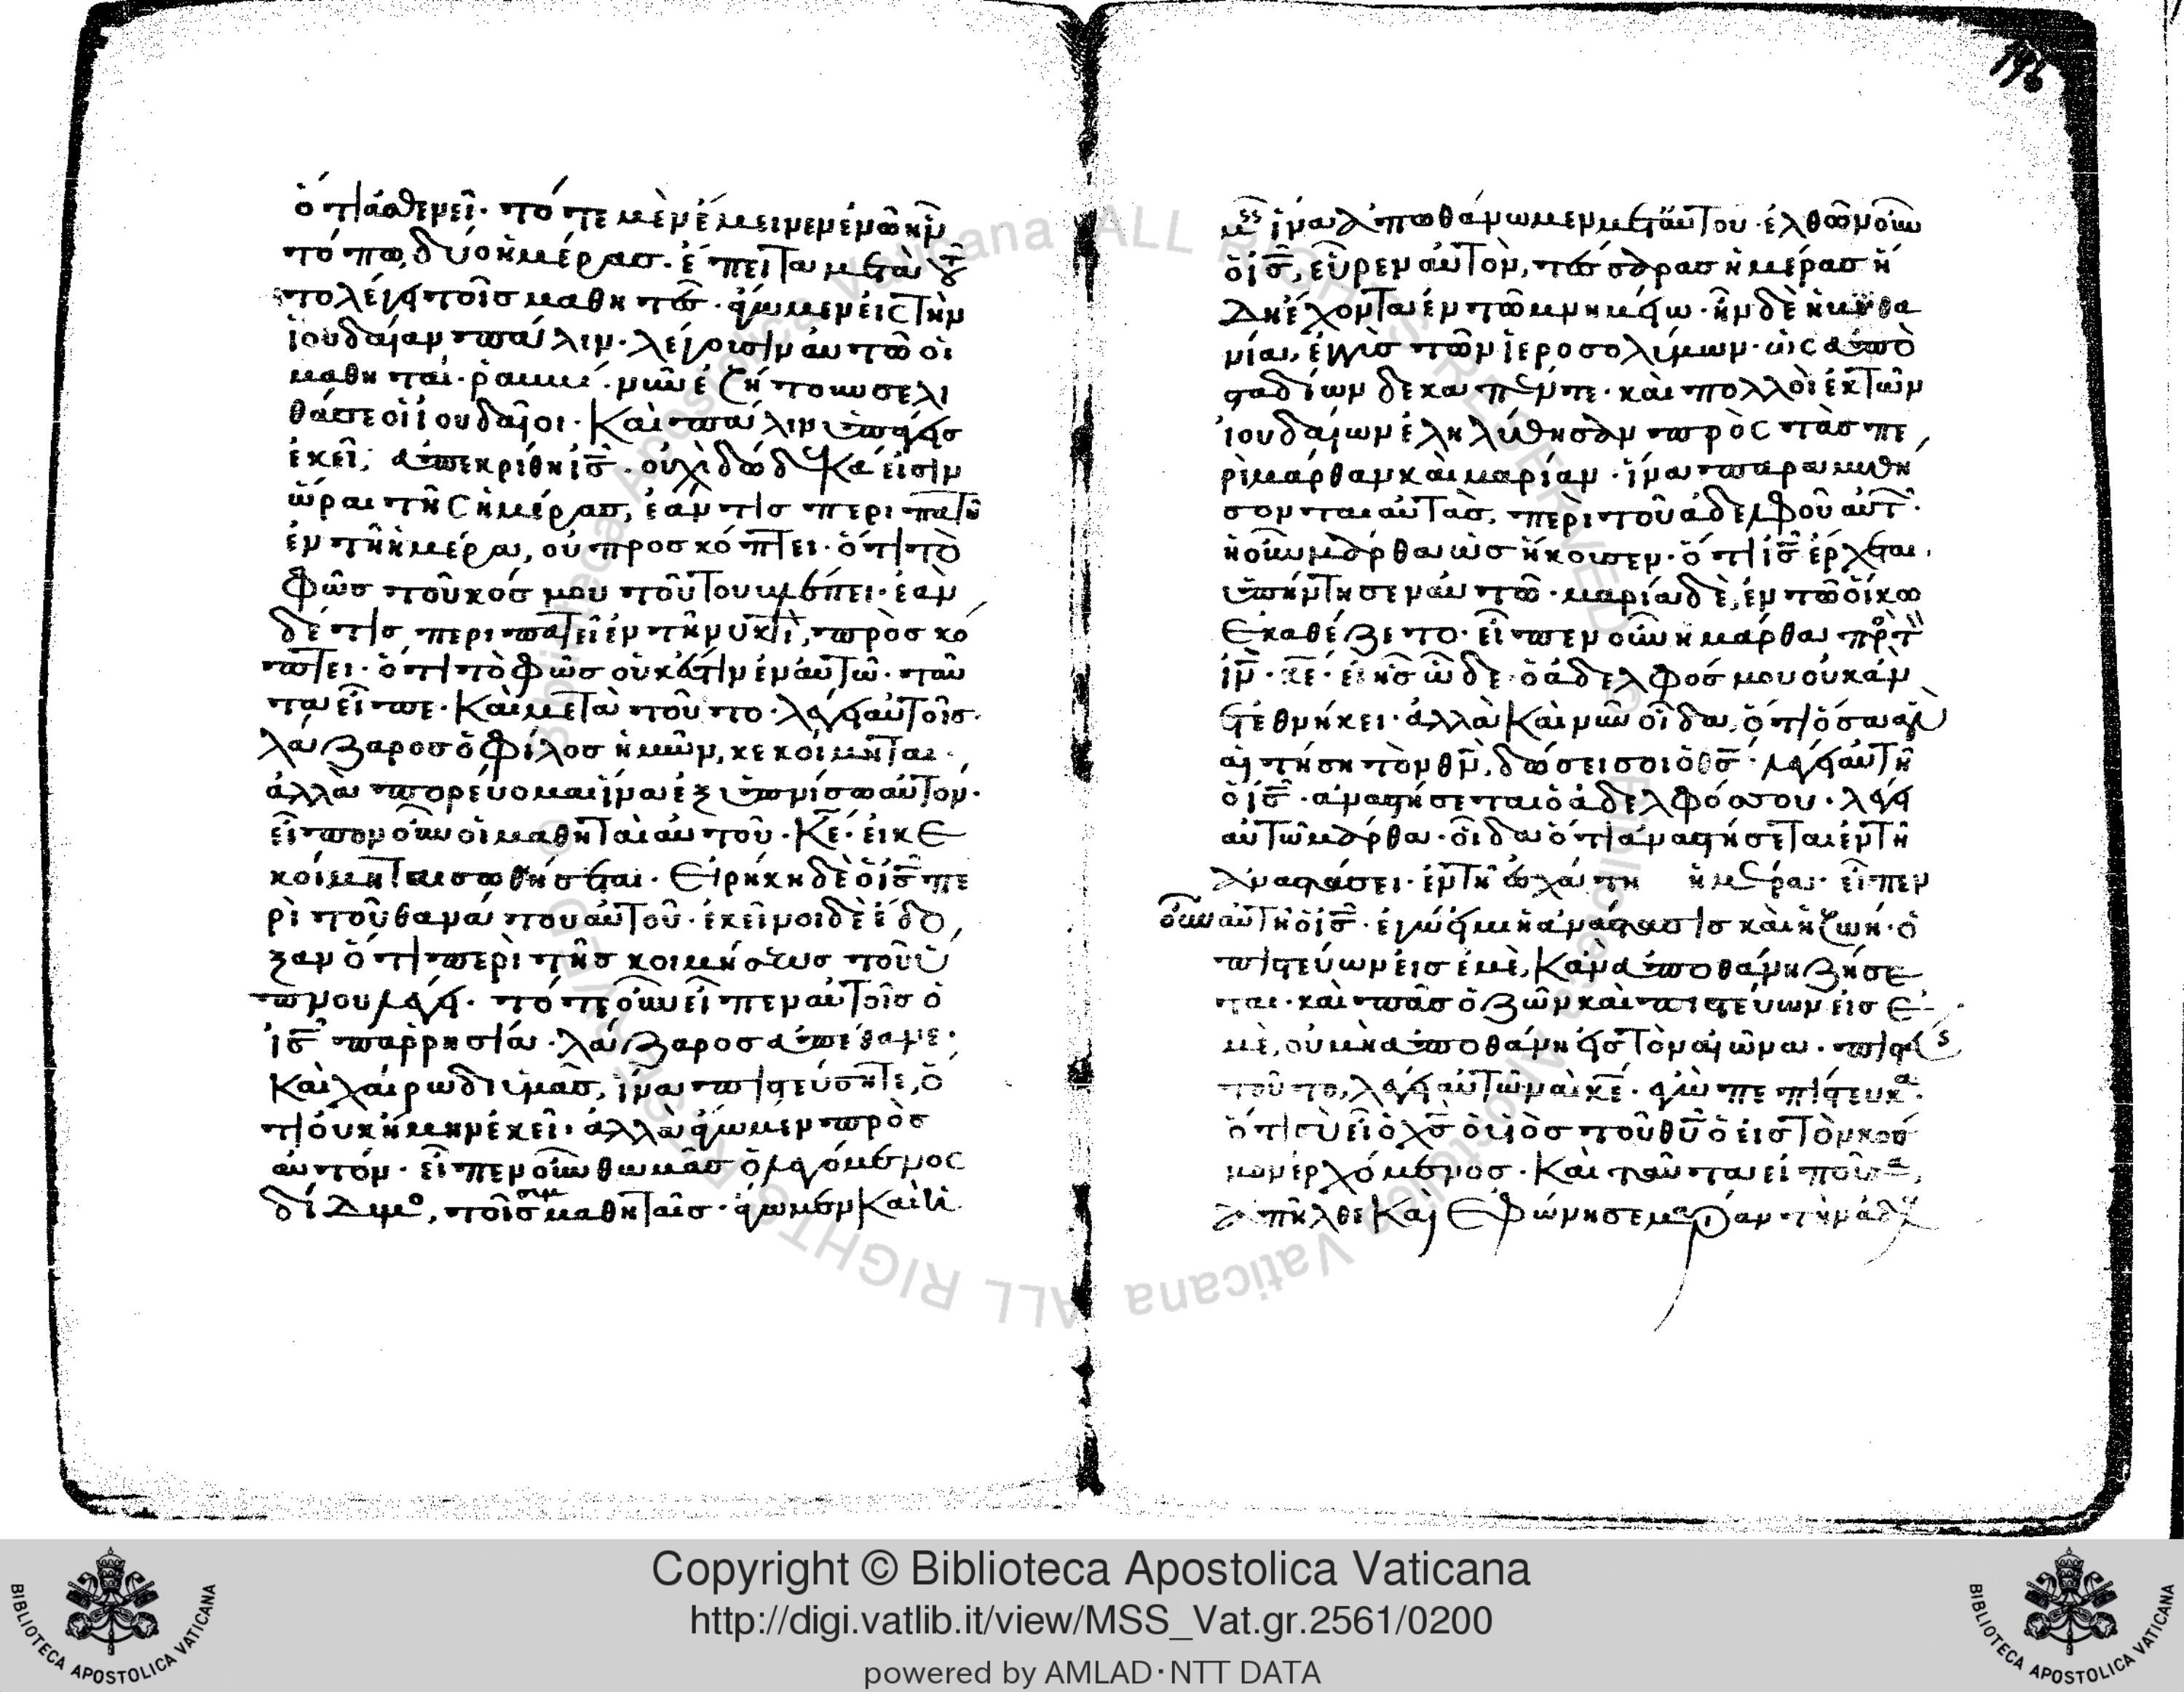 ὅτι ἀσθενεῖ· τότε μὲν ἔμεινεν ἐν ὧ ἦν
τόπω, δύο ἡμέρασ· ἔπειτα μετὰ τοῦ
το λέγει τοῖσ μαθηταῖσ· ἄγωμεν εἰς τὴν
ἰουδαίαν πάλιν· λέγουσιν αὐτῶ οἱ
μαθηταί· ῥαββί· νῦν ἐζήτουν σε λι
θάσε οἱ ἰουδαῖοι· Καὶ πάλιν ὑπάγεισ
ἐκεῖ; ἀπεκρίθη ισ· οὐχὶ δώδεκά εἰσιν
ὧραι τῆς ἡμέρασ, ἐάν τισ περιπατῆ
ἐν τῆ ἡμέρα, οὐ προσκόπτει· ὅτι τὸ
φῶσ τοῦ κόσμου τούτου βλέπει· ἐὰν
δέ τισ περιπατεῖ ἐν τῆ νυκτὶ, πρὸσκό
πτει· ὅτι τὸ φῶσ οὐκ ἔστιν ἐν αὐτῶ· ταῦ
τα εἶπε· Καὶ μετὰ τοῦτο· λέγει αὐτοῖσ·
λάζαροσ ὁ φίλοσ ἡμῶν, κεκοίμηται·
ἀλλὰ πορεύομαι ἵνα ἐξυπνίσω αὐτον·
εἶπον οὖν οἱ μαθηταὶ αὐτοῦ· Κε· εἰ κε
κοίμηται σωθήσεται· Εἰρήκη δὲ ὁ ισ πε
ρὶ τοῦ θανάτου αὐτοῦ· ἐκεῖνοι δὲ ἔδο
ξαν ὅτι περὶ τῆσ κοιμήσεωσ τοῦ ὕ
πνου λέγει· τότε οὖν εἶπεν αὐτοῖσ ὁ
ισ παρρησία· λάζαροσ ἀπέθανε·
Καὶ χαίρω δι ὑμᾶσ, ἵνα πιστεύσητε, ὅ
τι οὐκ ἤμην ἐκεῖ· ἀλλὰ ἄγωμεν πρὸσ
αὐτόν· εἶπεν οὖν θωμᾶσ ὁ λεγόμενος
δίδυμο, τοῖσ συμμαθηταῖσ· ἄγωμεν Καὶ ἡ
μεῖσ ἵνα ἀποθάνωμεν μετ αὐτου· ἐλθὼν οὖν
ὁ ισ, εὗρεν αὐτὸν, τέσσαρασ ἡμέρασ ἤ
δη ἔχοντα ἐν τῶ μνημείω· ἦν δὲ ἡ βηθα
νία, ἐγγὺσ τῶν ἱεροσολύμων· ὡς ἀπὸ
σταδίων δεκαπέντε· καὶ πολλοὶ ἐκ τῶν
ἰουδαίων ἐληλύθησαν πρὸς τὰσ πε
ρὶ μάρθαν καὶ μαρίαν· ἵνα παραμυθή
σονται αὐτὰσ, περὶ τοῦ ἀδελφοῦ αὐτ·
ἡ οὖν μάρθα ὡσ ἤκουσεν· ὅτι ισ ἔρχεται,
ὑπήντησεν αὐτῶ· μαρία δὲ, ἐν τῶ οἴκω
ἐκαθέζετο· εἶπεν οὖν ἡ μάρθα πρ τ
ιν· κε· εἰ ἦσ ὧδε ὁ ἀδελφόσ μου οὐκ ἂν
ἐτεθνήκει· ἀλλὰ Καὶ νῦν οἶδα, ὅτι ὅσα ἂν
αἰτήση τὸν θν, δώσει σοι ὁ θσ· λέγει αὐτῆ
ὁ ισ· ἀναστήσεται ὁ ἀδελφόσ σου· λέγει
αὐτῶ μάρθα· οἶδα ὅτι ἀναστήσεται ἐν τῆ
ἀναστάσει· ἐν τῆ ἐσχάτη ἡμέρα· εἶπεν
οὖν αὐτῆ ὁ ισ· ἐγώ εἰμι ἡ ἀνάστασισ καὶ ἡ ζωή· ὁ
πιστεύων εἰσ ἐμὲ, Κἂν ἀποθάνη ζήσε
ται· καὶ πᾶσ ὁ ζῶν καὶ πιστεύων εἰσ ἐ
μὲ, οὐ μὴ ἀποθάνη εἰσ τὸν αἰῶνα· πιστεύεισ
τοῦτο, λέγει αὐτῶ ναὶ κε· ἐγὼ πεπίστευκα·
ὅτι σὺ εἶ ὁ χσ ὁ υἱὸσ τοῦ θυ ὁ εἰσ τὸν κόσ
μον ἐρχόμενοσ· Καὶ ταῦτα εἰποῦσα,
ἀπῆλθε Καὶ Ἐφώνησε μαρίαν τὴν ἀδελ
196
Copyright © Biblioteca Apostolica Vaticana
http://digi.vatlib.it/view/MSS_Vat.gr.2561/0200
powered by AMLAD·NTT DATA
BIBLIOTECA APOSTOLICA VATICANA
BIBLIOTECA APOSTOLICA VATICANA